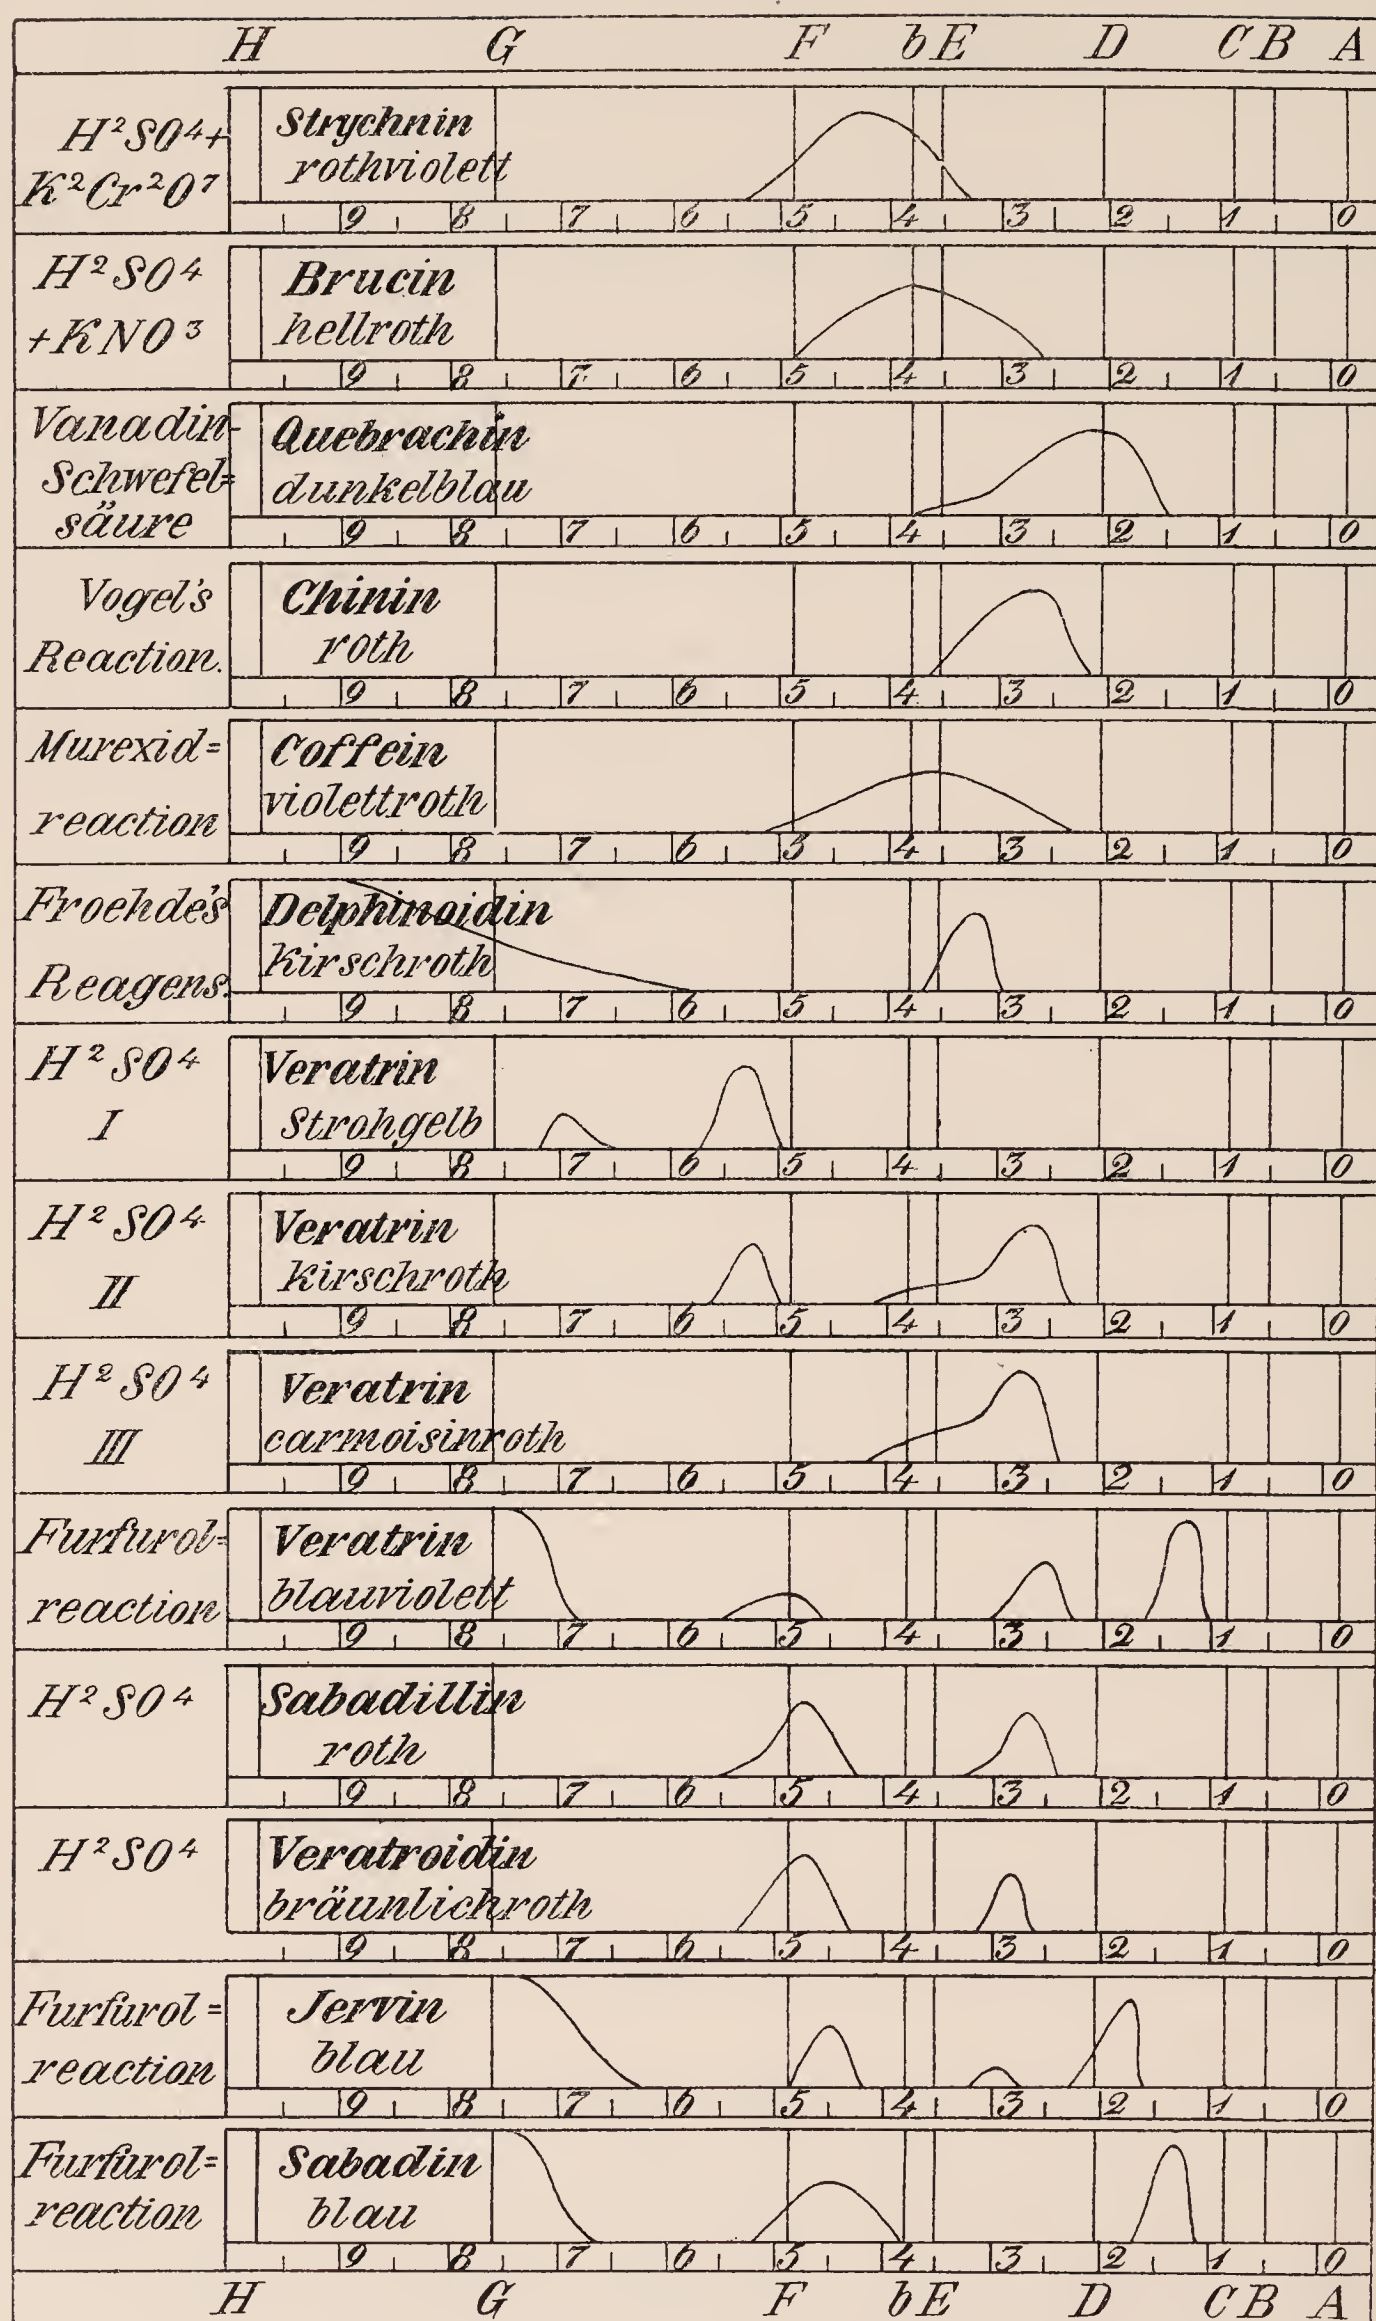 H G F b E D C B A
H²SO⁴+
K²Cr²O⁷
Strychnin
rothviolett
9 8 7 6 5 4 3 2 1 0
H²SO⁴
+KNO³
Brucin
hellroth
9 8 7 6 5 4 3 2 1 0
Vanadin-
Schwefel=
säure
Quebrachin
dunkelblau
9 8 7 6 5 4 3 2 1 0
Vogel's
Reaction.
Chinin
roth
9 8 7 6 5 4 3 2 1 0
Murexid=
reaction
Coffein
violettroth
9 8 7 6 5 4 3 2 1 0
Froehde's
Reagens.
Delphinoidin
kirschroth
9 8 7 6 5 4 3 2 1 0
H²SO⁴
I
Veratrin
Strohgelb
9 8 7 6 5 4 3 2 1 0
H²SO⁴
II
Veratrin
kirschroth
9 8 7 6 5 4 3 2 1 0
H²SO⁴
III
Veratrin
carmoisinroth
9 8 7 6 5 4 3 2 1 0
Furfurol=
reaction
Veratrin
blauviolett
9 8 7 6 5 4 3 2 1 0
H²SO⁴
Sabadillin
roth
9 8 7 6 5 4 3 2 1 0
H²SO⁴
Veratroidin
bräunlichroth
9 8 7 6 5 4 3 2 1 0
Furfurol=
reaction
Jervin
blau
9 8 7 6 5 4 3 2 1 0
Furfurol=
reaction
Sabadin
blau
9 8 7 6 5 4 3 2 1 0
H G F b E D C B A